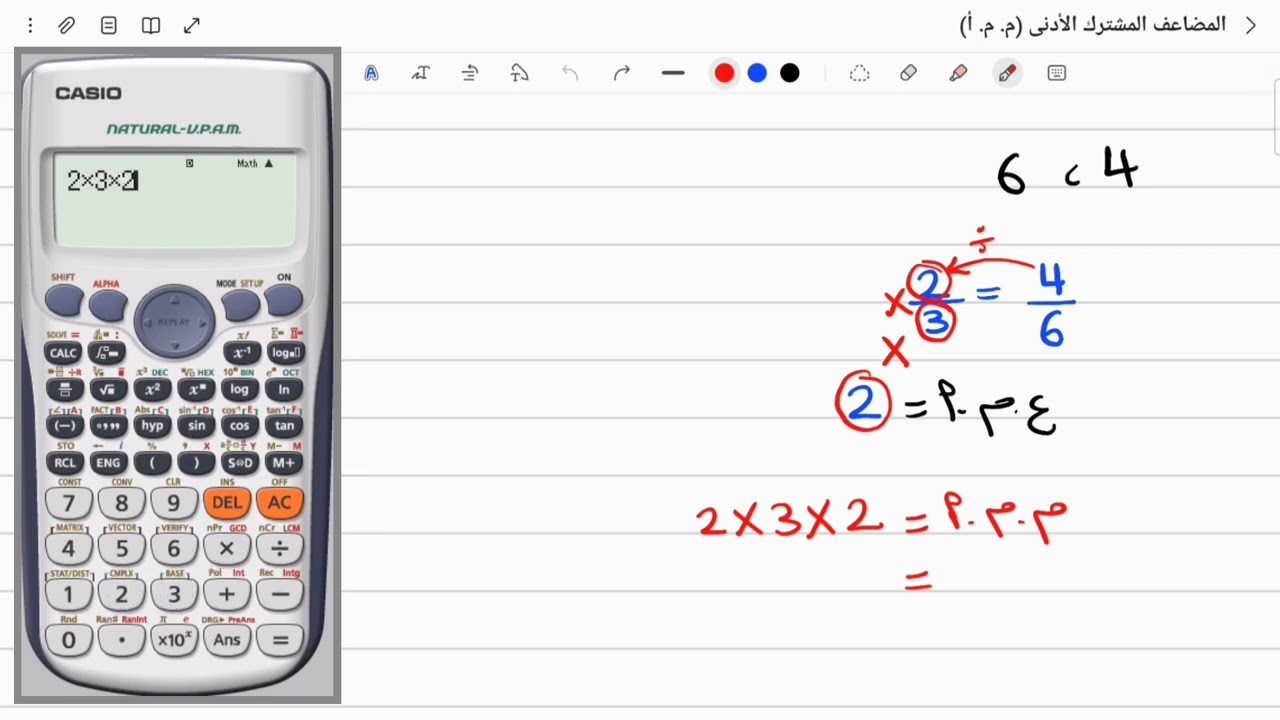 المضاعف المشترك الأدنى (م. م. أ)
CASIO
NATURAL-V.P.A.M.
D Math ▲
2×3×2
SHIFT ALPHA MODE SETUP ON
REPLAY
SOLVE = x! 
CALC x⁻¹ log
÷R x³ DEC HEX 10 BIN e OCT
√ x² x log ln
A FACT B Abs C sin⁻¹ D cos⁻¹ E tan⁻¹ F
(−) °,,, hyp sin cos tan
STO ← i % , X Y M− M
RCL ENG ( ) S⇔D M+
CONST CONV CLR INS OFF
7 8 9 DEL AC
MATRIX VECTOR VERIFY nPr GCD nCr LCM
4 5 6 × ÷
STAT/DIST CMPLX BASE Pol Int Rec Intg
1 2 3 + −
Rnd Ran# RanInt π e DRG▶ PreAns
0 . ×10ˣ Ans =
4 ، 6
÷
4/6 = 2/3 ×
×
ع.م.أ = 2
م.م.أ = 2×3×2
=